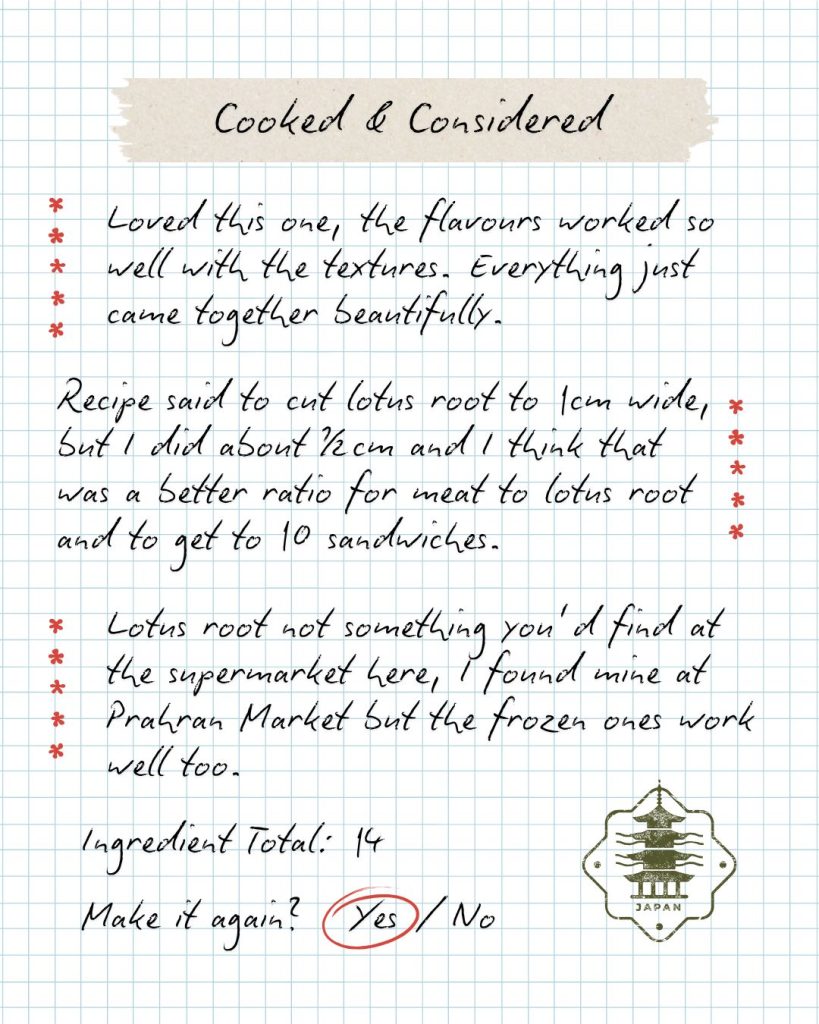 Cooked & Considered
Loved this one, the flavours worked so
well with the textures. Everything just
came together beautifully.
Recipe said to cut lotus root to 1cm wide,
but I did about ½cm and I think that
was a better ratio for meat to lotus root
and to get to 10 sandwiches.
Lotus root not something you'd find at
the supermarket here, I found mine at
Prahran Market but the frozen ones work
well too.
Ingredient Total: 14
Make it again? Yes / No
JAPAN